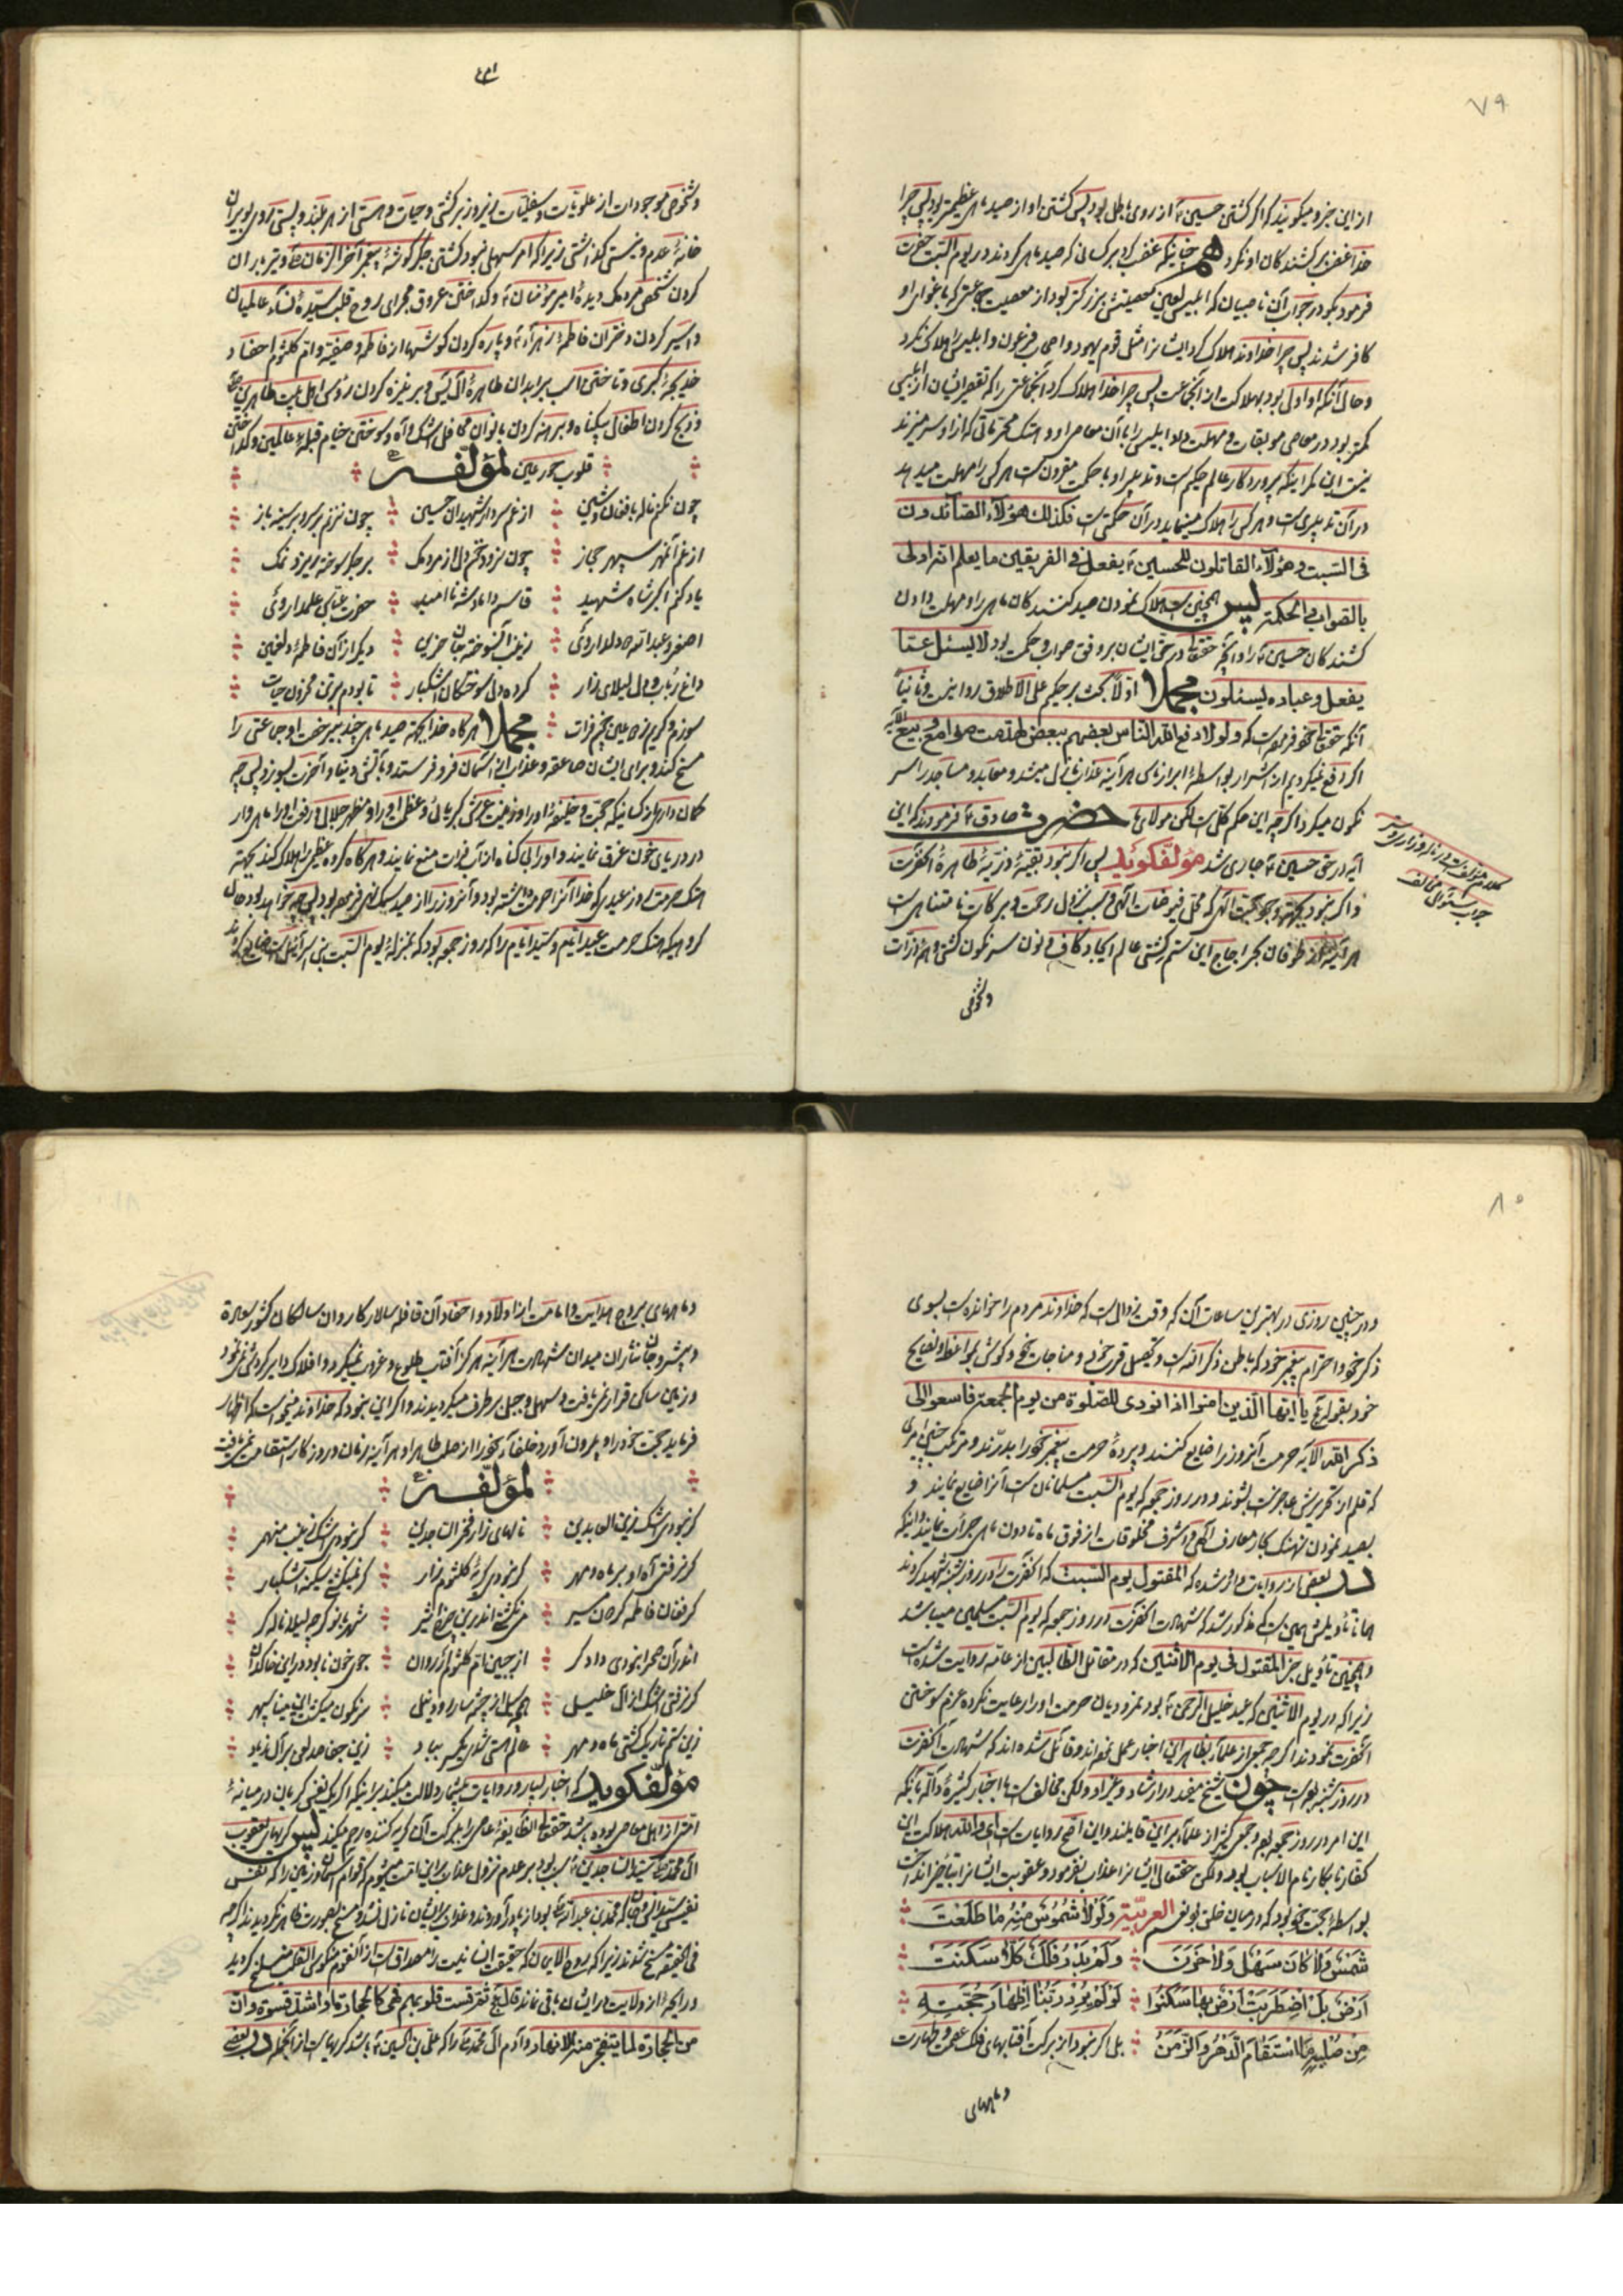 ٧٩
از این خبر و میگویند که اگر کشتن حسین ع از روی باطل بود پس کشتن او از صید ماهی عظیمتر بود پس چرا
خدا غضب بر کشندگان او نکرد همچنانکه غضب کرد بر کسانی که صید ماهی کردند در یوم السبت حضرت
فرمود بگو در جواب آن ناصبیان که ابلیس لعین معصیتش بزرگتر بود از معصیت جماعتی که باغوای او
کافر شدند پس چرا خداوند هلاک کرد ایشانرا مثل قوم یهود و اصحاب فرعون و ابلیس را هلاک نکرد
و حال آنکه او اولی بود بهلاکت از آنجماعت پس چرا خدا هلاک کرد آنجماعتی را که تقصیر ایشان از ابلیس
کمتر بود در معاصی موبقات و مهلت داد ابلیس را با آن معاصی او و هتک محرماتی که از او سر میزند
نیست این مگر اینکه پروردگار عالم حکیم است و تدبیر او با حکمت مقرونست هر که را مهلت میدهد
در آن تدبیری است و هر که را هلاک مینماید در آن حکمتی است فکذلک هؤلاء الصائدون
فی السبت و هؤلاء القاتلون للحسین ع یفعل فی الفریقین ما یعلم انه اولی
بالصواب و الحکمة پس همچنین است هلاک نمودن صید کنندگان ماهی را و مهلت دادن
کشندگان حسین ع را و آنچه حقتعالی در حق ایشان بر وفق صواب و حکمت بود لا یسئل عما
یفعل و عباده یسئلون مجملا اولاً بحث بر حکیم علی الاطلاق روا نیست و ثانیاً
آنکه حقتعالی خود فرموده است که و لولا دفع الله الناس بعضهم ببعض لهدمت صوامع و بیع الآیه
اگر دفع نمیکردیم از اشرار بواسطهٔ ابرار ناس هر آینه عذاب نازل میشد و معابد و مساجد را سر
نگون میکرد اگرچه این حکم کلی است لکن مولای ما حضرت صادق ع فرمودند که این
آیه در حق حسین ع جاری شد مؤلّف گوید پس اگر نبود بقیّهٔ ذریّهٔ طاهرهٔ آنحضرت
و اگر نبود وجود حجت الهی که محل فیوضات الهی و سبب نزول رحمت و برکات نامتناهی است
هر آینه از طوفان بحر اجاج این ستم کشتی عالم ایجاد کاف و نون سرنگون گشتی و همه ذرات
و شخوص
کلام مؤلف در
جواب سؤال مخالف
و شخوص موجودات از علویّات و سفلیّات زیر و زبر گشتی و حیات و هستی از هر بلند و پستی روی بویران
خانهٔ عدم و نیستی گذاشتی زیرا که امر سهلی نبود کشتن جگر گوشهٔ پیغمبر آخر الزمان ص و تیرباران
کردن شخص مردمک دیدهٔ امیر مؤمنان ع و گداختن عروق مجرای روح قلب سیّدهٔ نساء عالمیان
و اسیر کردن دختران فاطمهٔ زهراء ع و پاره کردن گوشهای از فاطمه و صفیّه و ام کلثوم احفاد
خدیجهٔ کبری و تاختن اسب بر ابدان طاهرهٔ آل یس و بر نیزه کردن رؤس اهل بیت طاهرین
و ذبح کردن اطفال بیگناه و برهنه کردن بانوان محافل اشک و آه و سوختن خیام قبلهٔ عالمین و گداختن
قلوب حور عین لمؤلفه
چون نکنم ناله بافغان و شین ؞ از غم سردار شهیدان حسین ؞ چون نزنم بر سر و بر سینه باز
از غم آنمهر سپهر حجاز ؞ چون نرود خون دل از مردمک ؞ بر جگر سوخته ریزد نمک
یاد کنم اکبر شاه شهید ؞ قاسم داماد شه ناامید ؞ حضرت عباس علمدار وی
اصغر و عبدالله دلدار وی ؞ زینب آن سوخته جان حزین ؞ دیگر از آن فاطمه دلغمین
داغ رباب و دل لیلای زار ؞ کرده دلی سوختگان اشکبار ؞ تا بودم در تن محزون حیات
سوزم و گریم ز عین فرات مجملا هرگاه خدا بجهة صید ماهی چند بیرخصت او جماعتی را
مسخ کند و برای ایشان صاعقه و عذاب از آسمان فرو فرستد و بآتش دنیا و آخرت بسوزد پس چه
گمان داری بکسانیکه حجت و خلیفهٔ او را و زینت عرش کبریائی و عظمت او را و مظهر جلال و رفعت او را ماهی وار
در دریای خون غرق نمایند و او را بی گناه از آب فرات منع نمایند و هرگاه گروه عظیمی را هلاک کند بجهة
هتک حرمت روز عیدی که خدا آنرا حرمت داشته بود و آنروز را از صید سمک نهی فرموده بود پس چه خواهد بود حال
گروهیکه هتک حرمت عید ایام و سید ایام را که روز جمعه بود که بمنزلهٔ یوم السبت بنی اسرائیل است ضایع کردند
٨٠
و در چنین روزی در بهترین ساعات آن که وقت زوال است که خداوند مردم را خوانده است بسوی
ذکر خود و احترام پیغمبر خود که باطن ذکر الله است و تحصیل قرب خود و مناجات خود و گوش بمواعظ و نصایح
خود بقوله تعالی یا ایها الذین امنوا اذا نودی للصلوة من یوم الجمعة فاسعوا الی
ذکر الله الآیه حرمت آنروز را ضایع کنند و پردهٔ حرمت پیغمبر خود را بدرّند و مرتکب چنین امری
که قلم از تحریرش عاجز است بشوند و در روز جمعه که یوم السبت مسلمانان است آنرا ضایع نمایند و
بصید نمودن نهنگ بحار معارف الهی و اشرف مخلوقات از فوق ماه تا دون ماهی جرأت نمایند و اینکه
در بعضی از روایات وارد شده که المقتول یوم السبت که آنحضرت را در روز شنبه شهید کردند
همانا تأویلش همین است که مذکور شد که شهادت آنحضرت در روز جمعه که یوم السبت مسلمین میباشد
و همچنین تأویل خبر المقتول فی یوم الاثنین که در مقاتل الطالبیین از عامّه روایت شده است
زیرا که در یوم الاثنین که عید خلیل الرحمن ع بود نمرودیان حرمت او را رعایت نکرده عزم سوختن
آنحضرت نمودند اگرچه جمعی از علماء بظاهر این اخبار عمل نموده اند و قائل شده اند که شهادت آنحضرت
در روز شنبه بوده است چون شیخ مفید در ارشاد و غیر او ولکن مخالف است با اخبار کثیرهٔ داله بآنکه
این امر در روز جمعه بود و جمعی کثیر از علماء بر این قایلند و این اصح روایات است ای والله هلاکت این
کفار نابکار تام الاسباب بود ولکن حقتعالی ایشانرا عذاب نفرمود و عقوبت ایشانرا بتأخیر انداخت
بواسطهٔ حجت خود بود که در میان خلق بود نعم العربیّة وَ لَوْلا شُمُوسٌ مِنْهُ مَا طَلَعَتْ
شَمْسٌ وَلا کَانَ سَهْلٌ وَلا حَزَنَ ؞ وَ لَمْ یَدُرْ فَلَکٌ کَلّا سَکَنَتْ
اَرْضٌ بَلْ اضْطَرَبَتْ اَرْضٌ بِهَا سَکَنُوا ؞ لَوْ لَمْ یُرِدْ رَبُّنَا اِظْهَارَ حُجَّتِهِ
مِنْ صُلْبِهِ مَا اسْتَقَامَ الدَّهْرُ وَ الزَّمَنُ ؞ بلی اگر نبود از برکت آفتابهای فلک عصمت و طهارت
و ماههای
و ماههای بروج هدایت و امامت از اولاد و احفاد آن قافله سالار کاروان سالکان کشور سعادت
و پیشرو جان نثاران میدان شهادت هر آینه هرگز آفتاب طلوع و غروب نمیکرد و افلاک دایر گردش نمی نمود
و زمین ساکن قرار نمی یافت و سهل و جبل برطرف میگردیدند و اگر این نبود که خداوند میخواست که اظهار
فرماید حجت خود را و بیرون آورد خلفاء خود را از صلب طاهر او هر آینه زمان و روزگار استقامت نمی یافت
لمؤلفه
گر نبودی اشک زین العابدین ؞ نالهای زار فخر الساجدین ؞ گر نبودی اشک زینب منهمر
گر نرفتی آه او بر ماه و مهر ؞ گر نبودی گریهٔ کلثوم زار ؞ گر نمیگشتی سکینه اشکبار
گر فغان فاطمه گردون مسیر ؞ می نگشتی اندرین ؞ شهربانو گرچه لیلا ناله گر
اندر آن صحرا نبودی دادگر ؞ از جبین ام کلثوم ار روان ؞ جوی خون نابود در این خاکدان
گر نرفتی اشک از آل خلیل ؞ همچو سیل از چشمه سار رود نیل ؞ سرنگون میگشت این مینا سپهر
زین ستم تاریک گشتی ماه و مهر ؞ عالم هستی شدی یکسر بباد ؞ زین جفا صد لعن بر آل زیاد
مؤلف گوید که اخبار بسیار و روایات بیشمار دلالت میکند بر اینکه اگر یک نفس گریان در میانهٔ
امتی از اهل معاصی بوده باشد حقتعالی آن طایفهٔ عاصی را ببرکت آن گریه کننده رحم میکند پس گریهای یعقوب
آل محمد سید الساجدین ع سبب بود بر عدم نزول عذاب بر این امت میشوم که قوام آسمان و زمین را که نفس
نفیس محمد بن عبدالله بود از پا در آوردند و عذاب بر ایشان نازل نشد و مسخ بصورت ظاهر نگردیدند اگرچه
فی الحقیقة مسخ شدند زیرا که روح الایمان که حقیقت انسانیت را مصداق است از آنقوم منکوس القلب منسلخ گردید
و رایحهٔ از ولایت در ایشان باقی نماند قال تعالی ثم قست قلوبهم فهی کالحجارة او اشد قسوة و ان
من الحجارة لما یتفجر منه الانهار و آدم آل محمد ص را که علی بن الحسین ع باشد گریهایست از آنجمله در بعضی